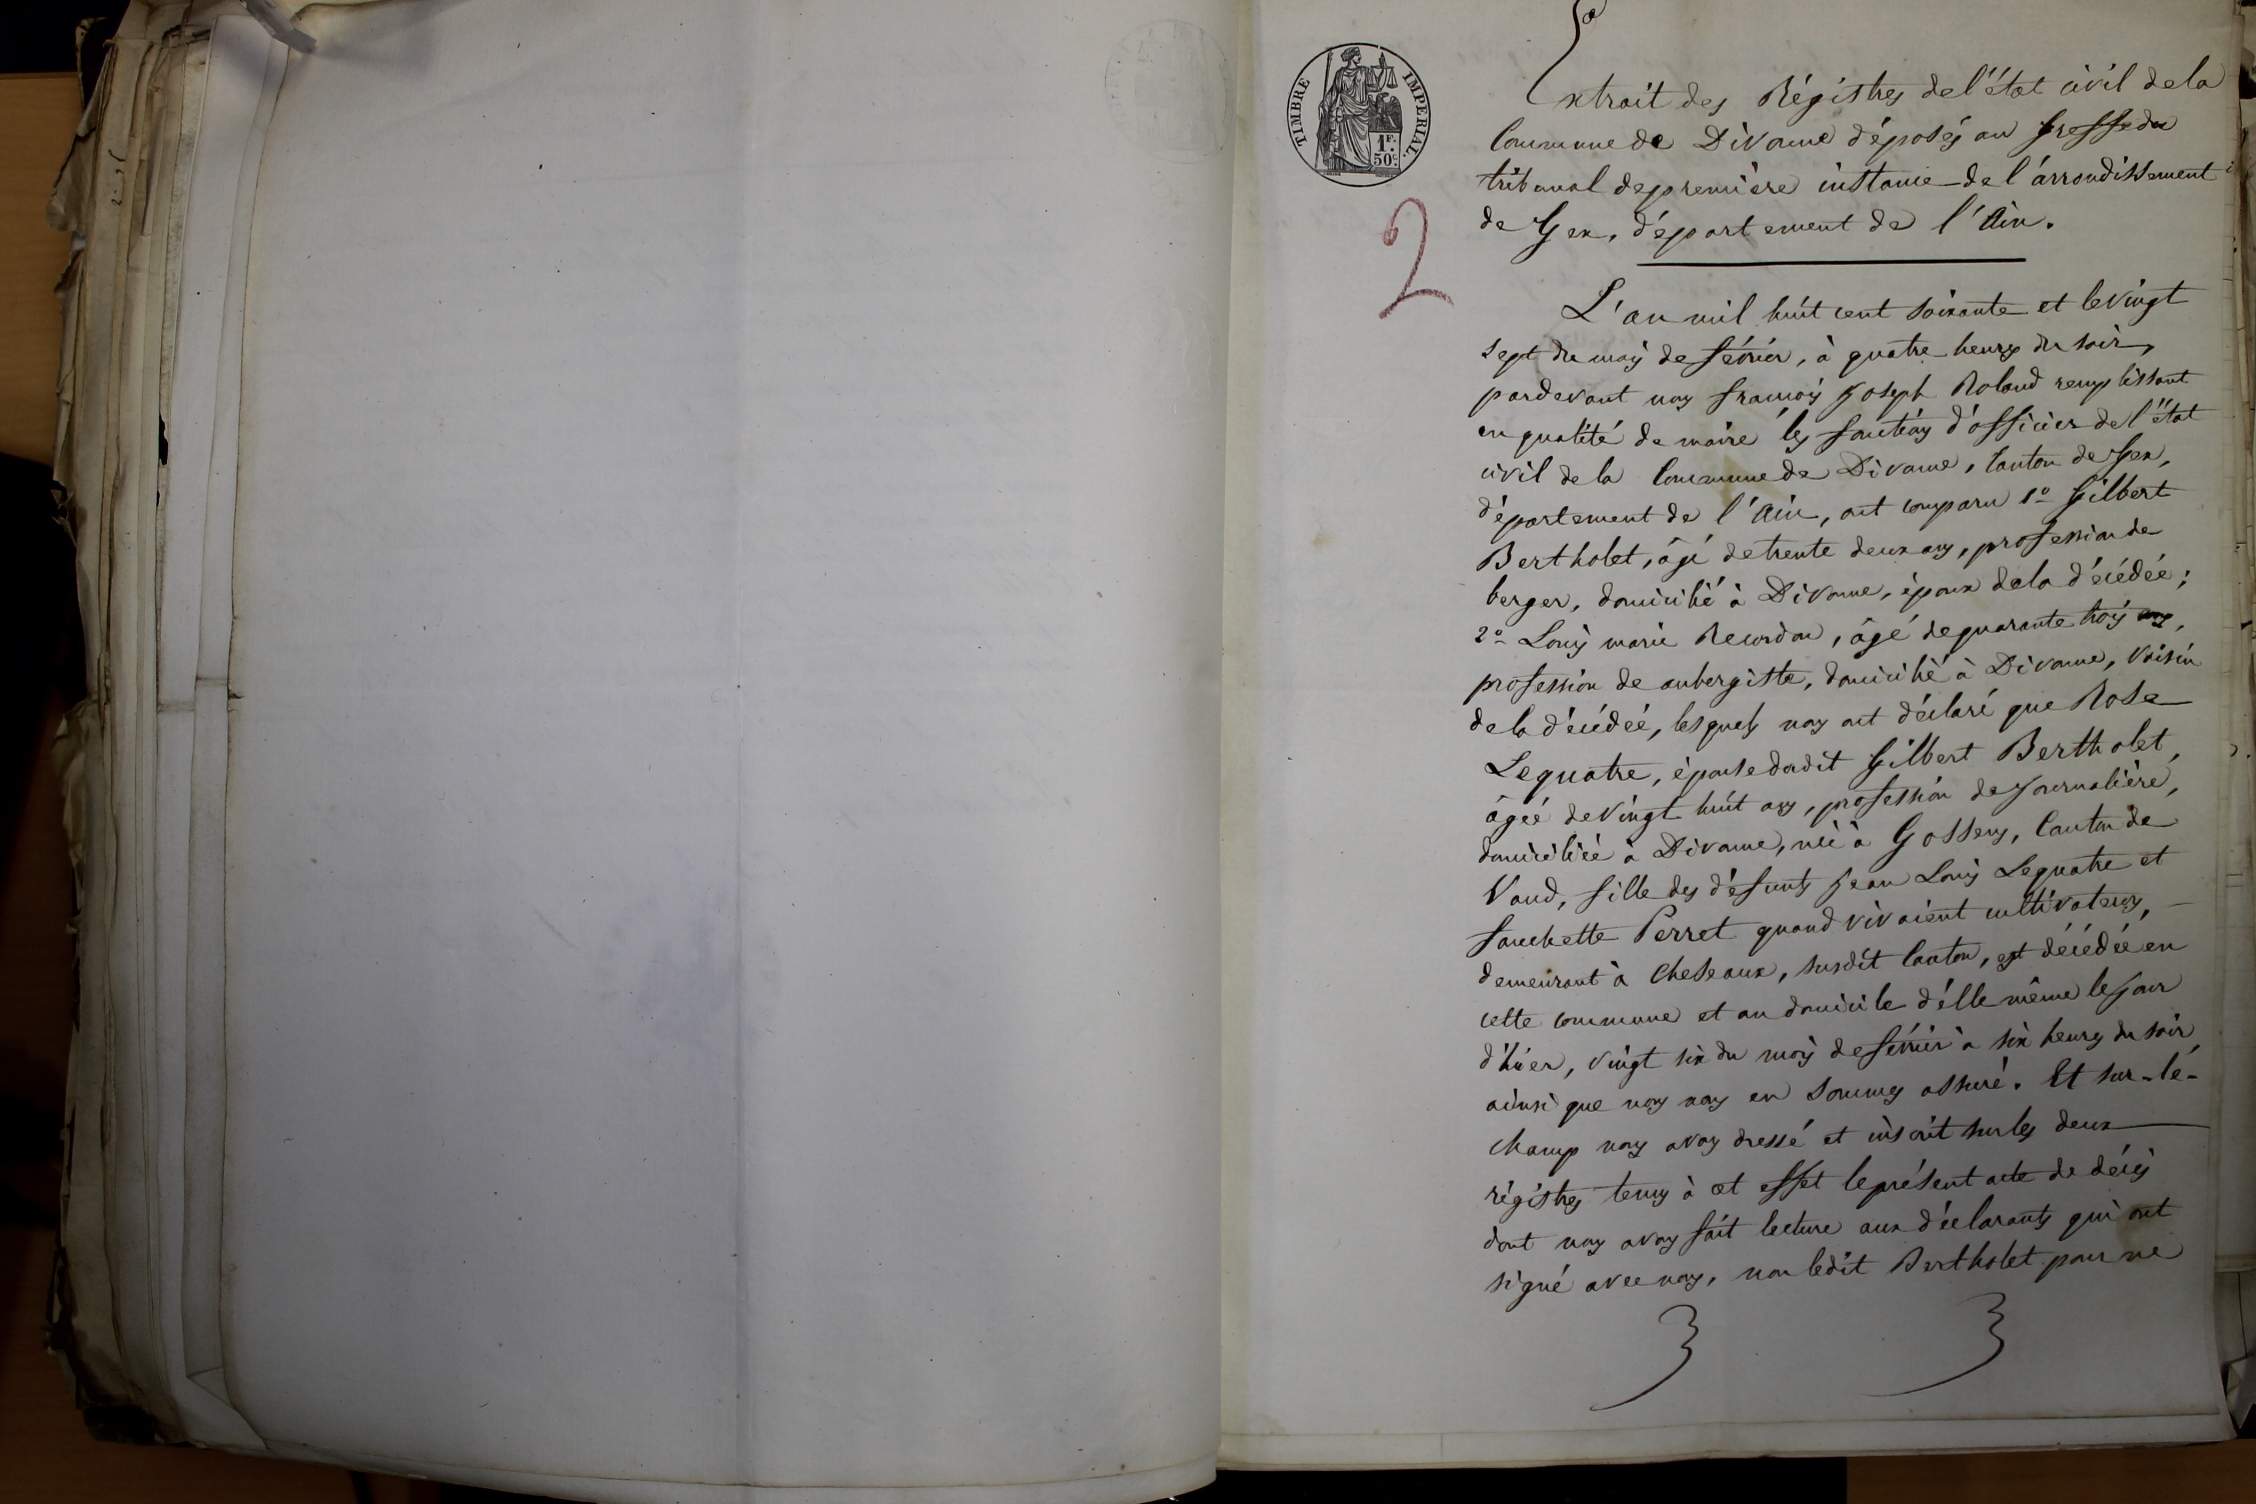 TIMBRE IMPERIAL.
1F.
50c.
2
Extrait des Régistres de l'état civil de la
Commune de Divonne déposés au greffe du
tribunal de première instance de l'arrondissement
de Gex, département de l'Ain.
L'an mil huit cent soixante et le vingt
sept du mois de février, à quatre heures du soir,
pardevant nous françois Joseph Roland remplissant
en qualité de maire les fonctions d'officier de l'état
civil de la Commune de Divonne, Canton de Gex,
département de l'Ain, ont comparu 1o Gilbert
Bertholet, âgé de trente deux ans, profession de
berger, domicilié à Divonne, époux de la décédée;
2o Louis marie Recordon, âgé de quarante trois ans,
profession de aubergiste, domicilié à Divonne, voisin
de la décédée, lesquels nous ont déclaré que Rose
Lequatre, épouse dudit Gilbert Bertholet,
âgée de vingt huit ans, profession de journalière,
domiciliée à Divonne, née à Gossens, Canton de
Vaud, fille des défunts Jean Louis Lequatre et
fanchette Perret quand vivaient cultivateurs,
demeurant à Cheseaux, susdit Canton, est décédée en
cette commune et au domicile d'elle même le jour
d'hier, vingt six du mois de février à six heures du soir,
ainsi que nous nous en sommes assuré. Et sur-le-
champ nous avons dressé et inscrit sur les deux
régistres tenus à cet effet le présent acte de décès
dont nous avons fait lecture aux déclarants qui ont
signé avec nous, non ledit Bertholet pour ne